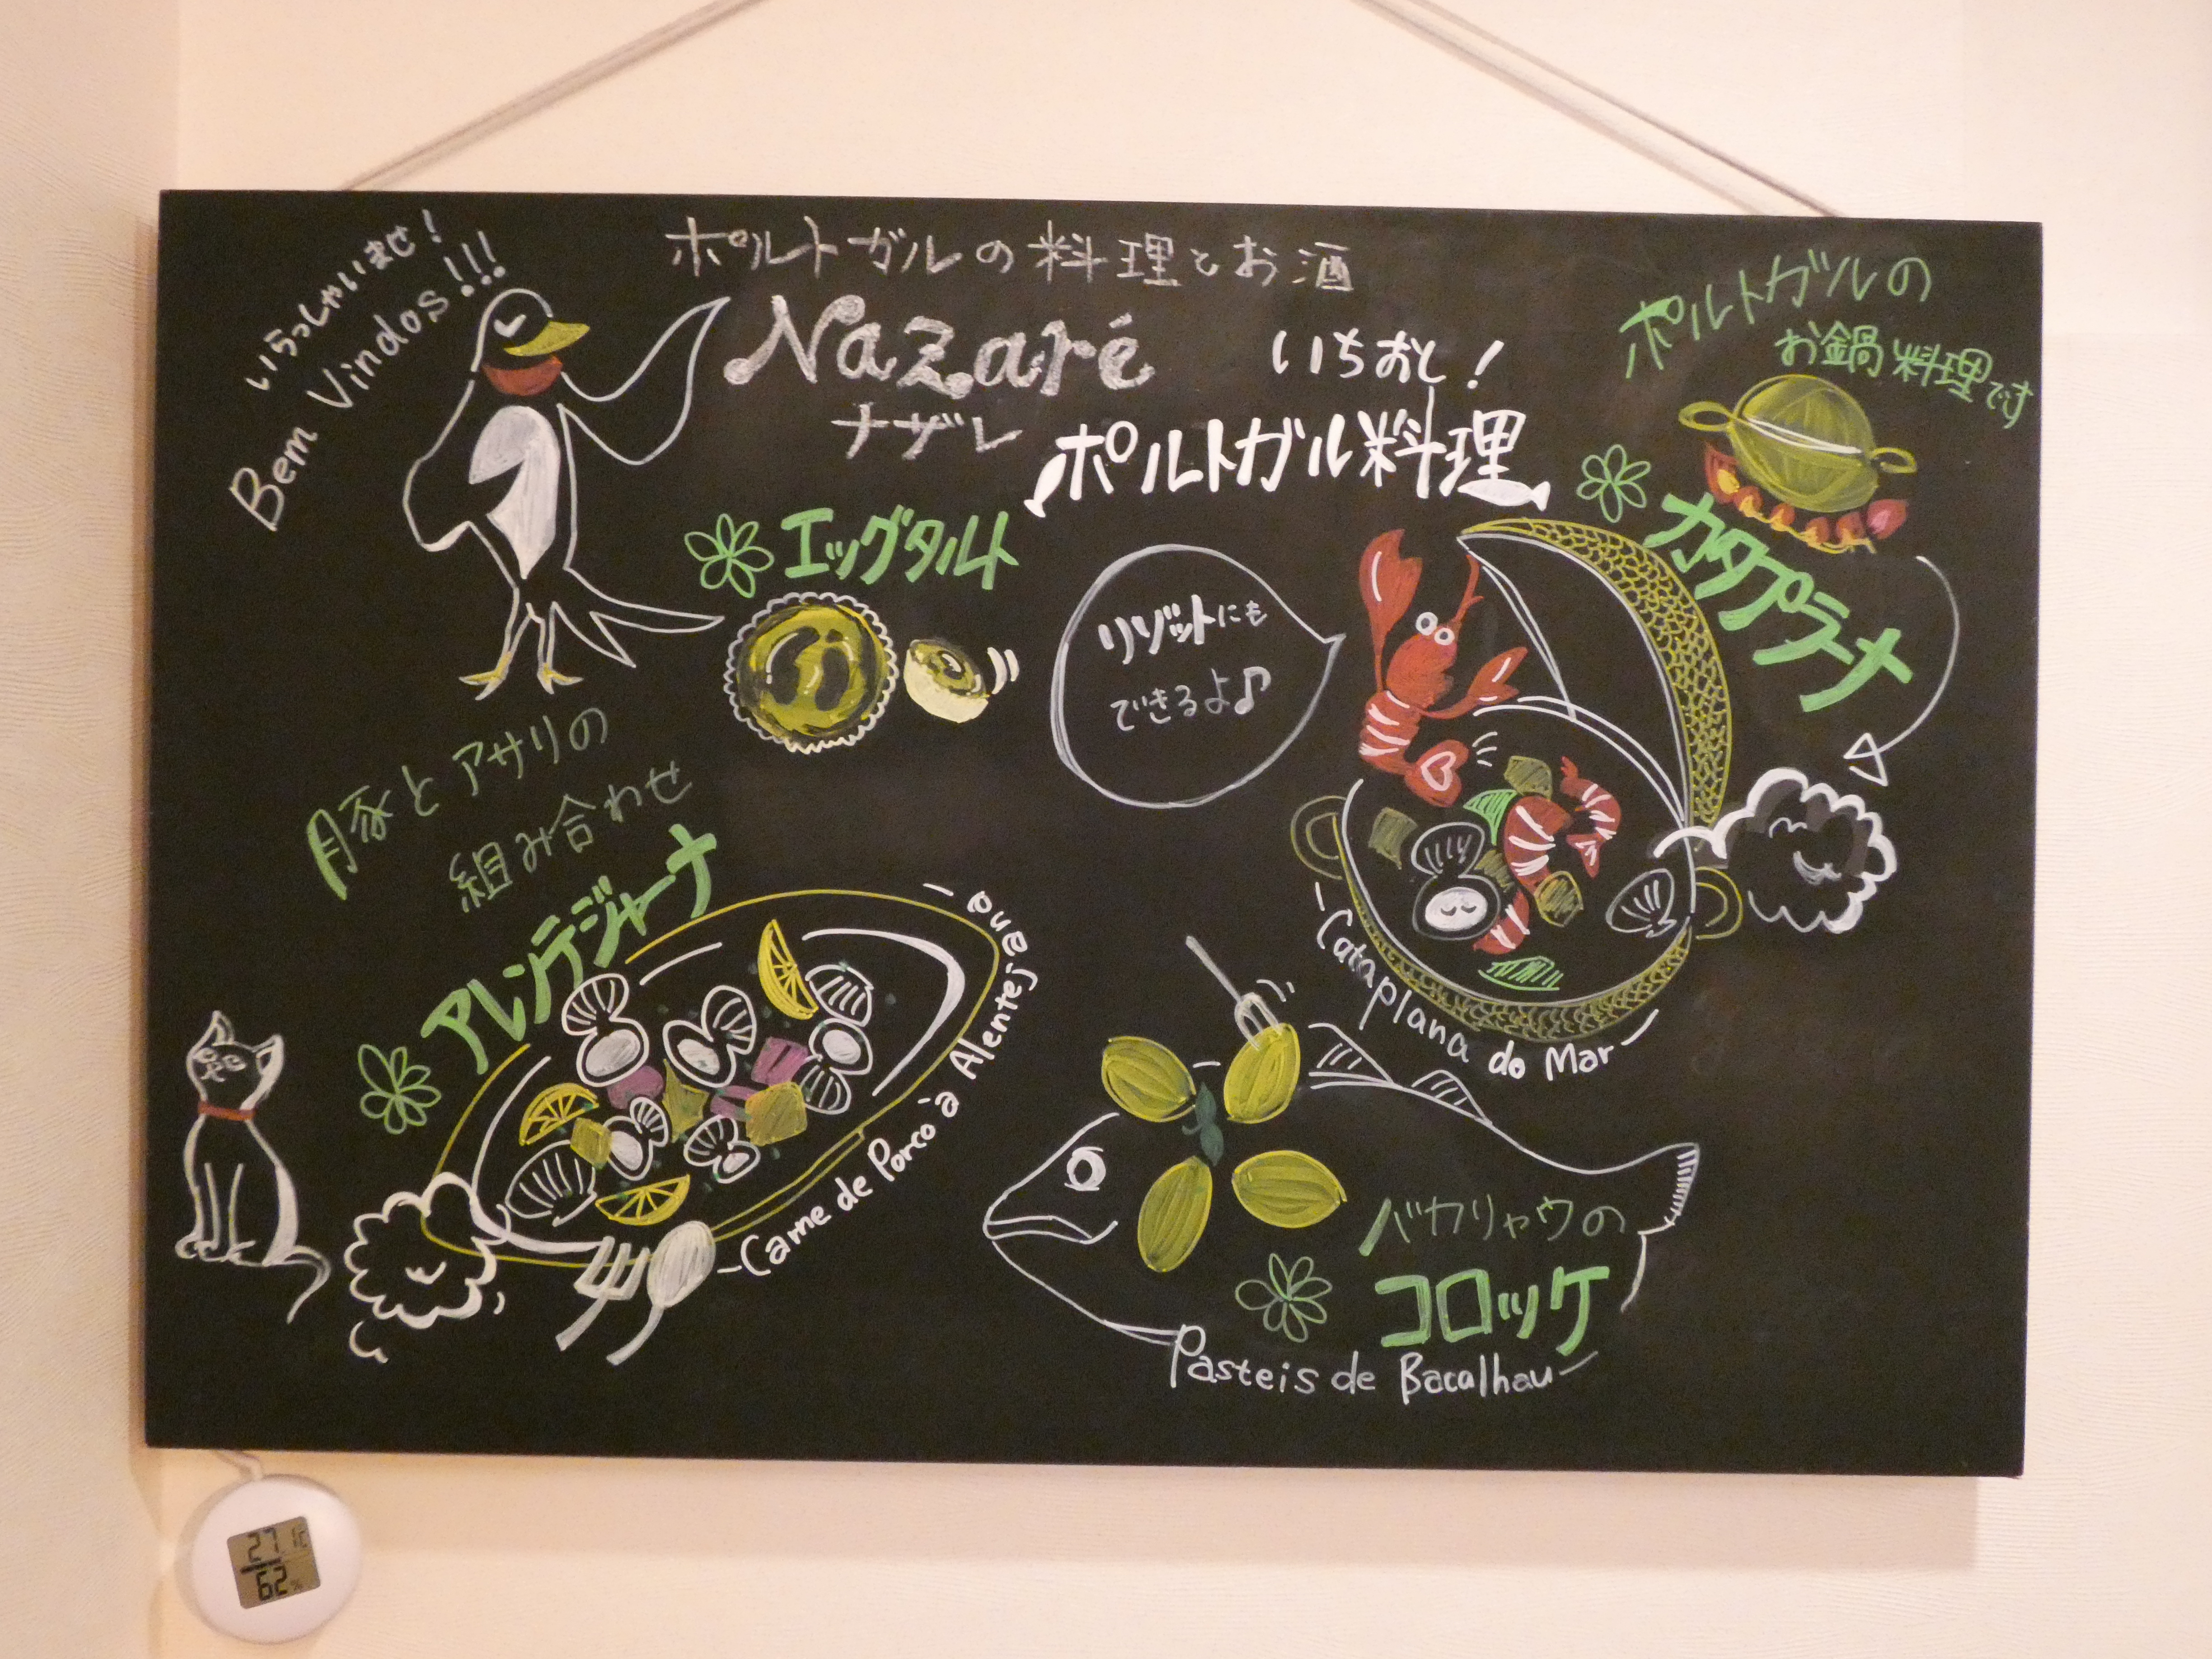 いらっしゃいませ！
Bem Vindos!!!
ポルトガルの料理とお酒
Nazaré
ナザレ
いちおし！
ポルトガル料理
ポルトガルの
お鍋料理です
カタプラーナ
エッグタルト
リゾットにも
できるよ♪
豚とアサリの
組み合わせ
アレンテジャーナ
Carne de Porco à Alentejana
Cataplana do Mar
バカリャウの
コロッケ
Pasteis de Bacalhau
27.1℃
62%